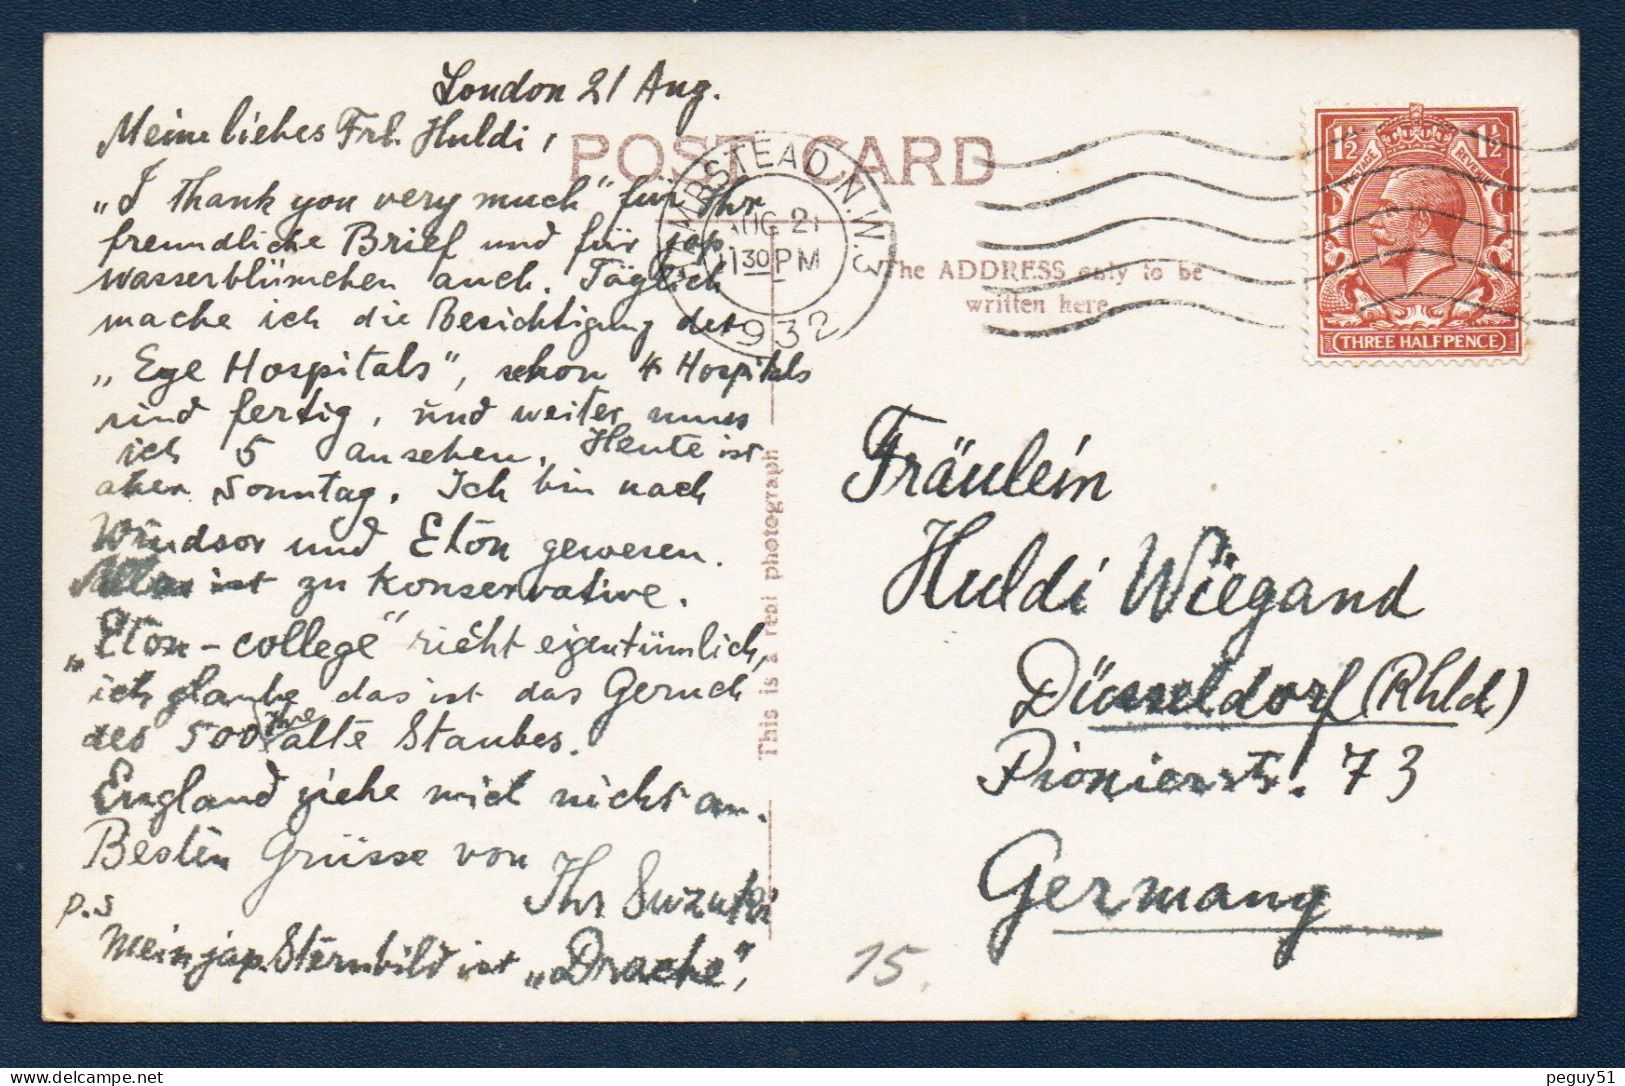 London 21 Aug.
Meine liebes Frl. Huldi,
„I thank you very much" für Ihr
freundliche Brief und für jap
wasserblümchen auch. Täglich
mache ich die Besichtigung der
„Eye Hospitals", schon 4 Hospitals
sind fertig, und weiter muss
ich 5 ansehen. Heute ist
aber Sonntag. Ich bin nach
Windsor und Eton gewesen.
Alles ist zu konservative.
„Eton-college" riecht eigentümlich,
ich glaube das ist das Geruch
des 500 Jhre alte Staubes.
England ziehe mich nicht an.
Besten Grüsse von
Ihr Suzuki
P.S
Mein jap. Sternbild ist „Drache",
POST CARD
HAMPSTEAD. N.W.3
AUG 21
11 30 PM
1932
The ADDRESS only to be
written here.
1½ 1½
POSTAGE REVENUE
THREE HALFPENCE
This is a real photograph
Fräulein
Huldi Wiegand
Düsseldorf (Rhld)
Pionierstr. 73
Germany
15.
peguy51
delcampe.net